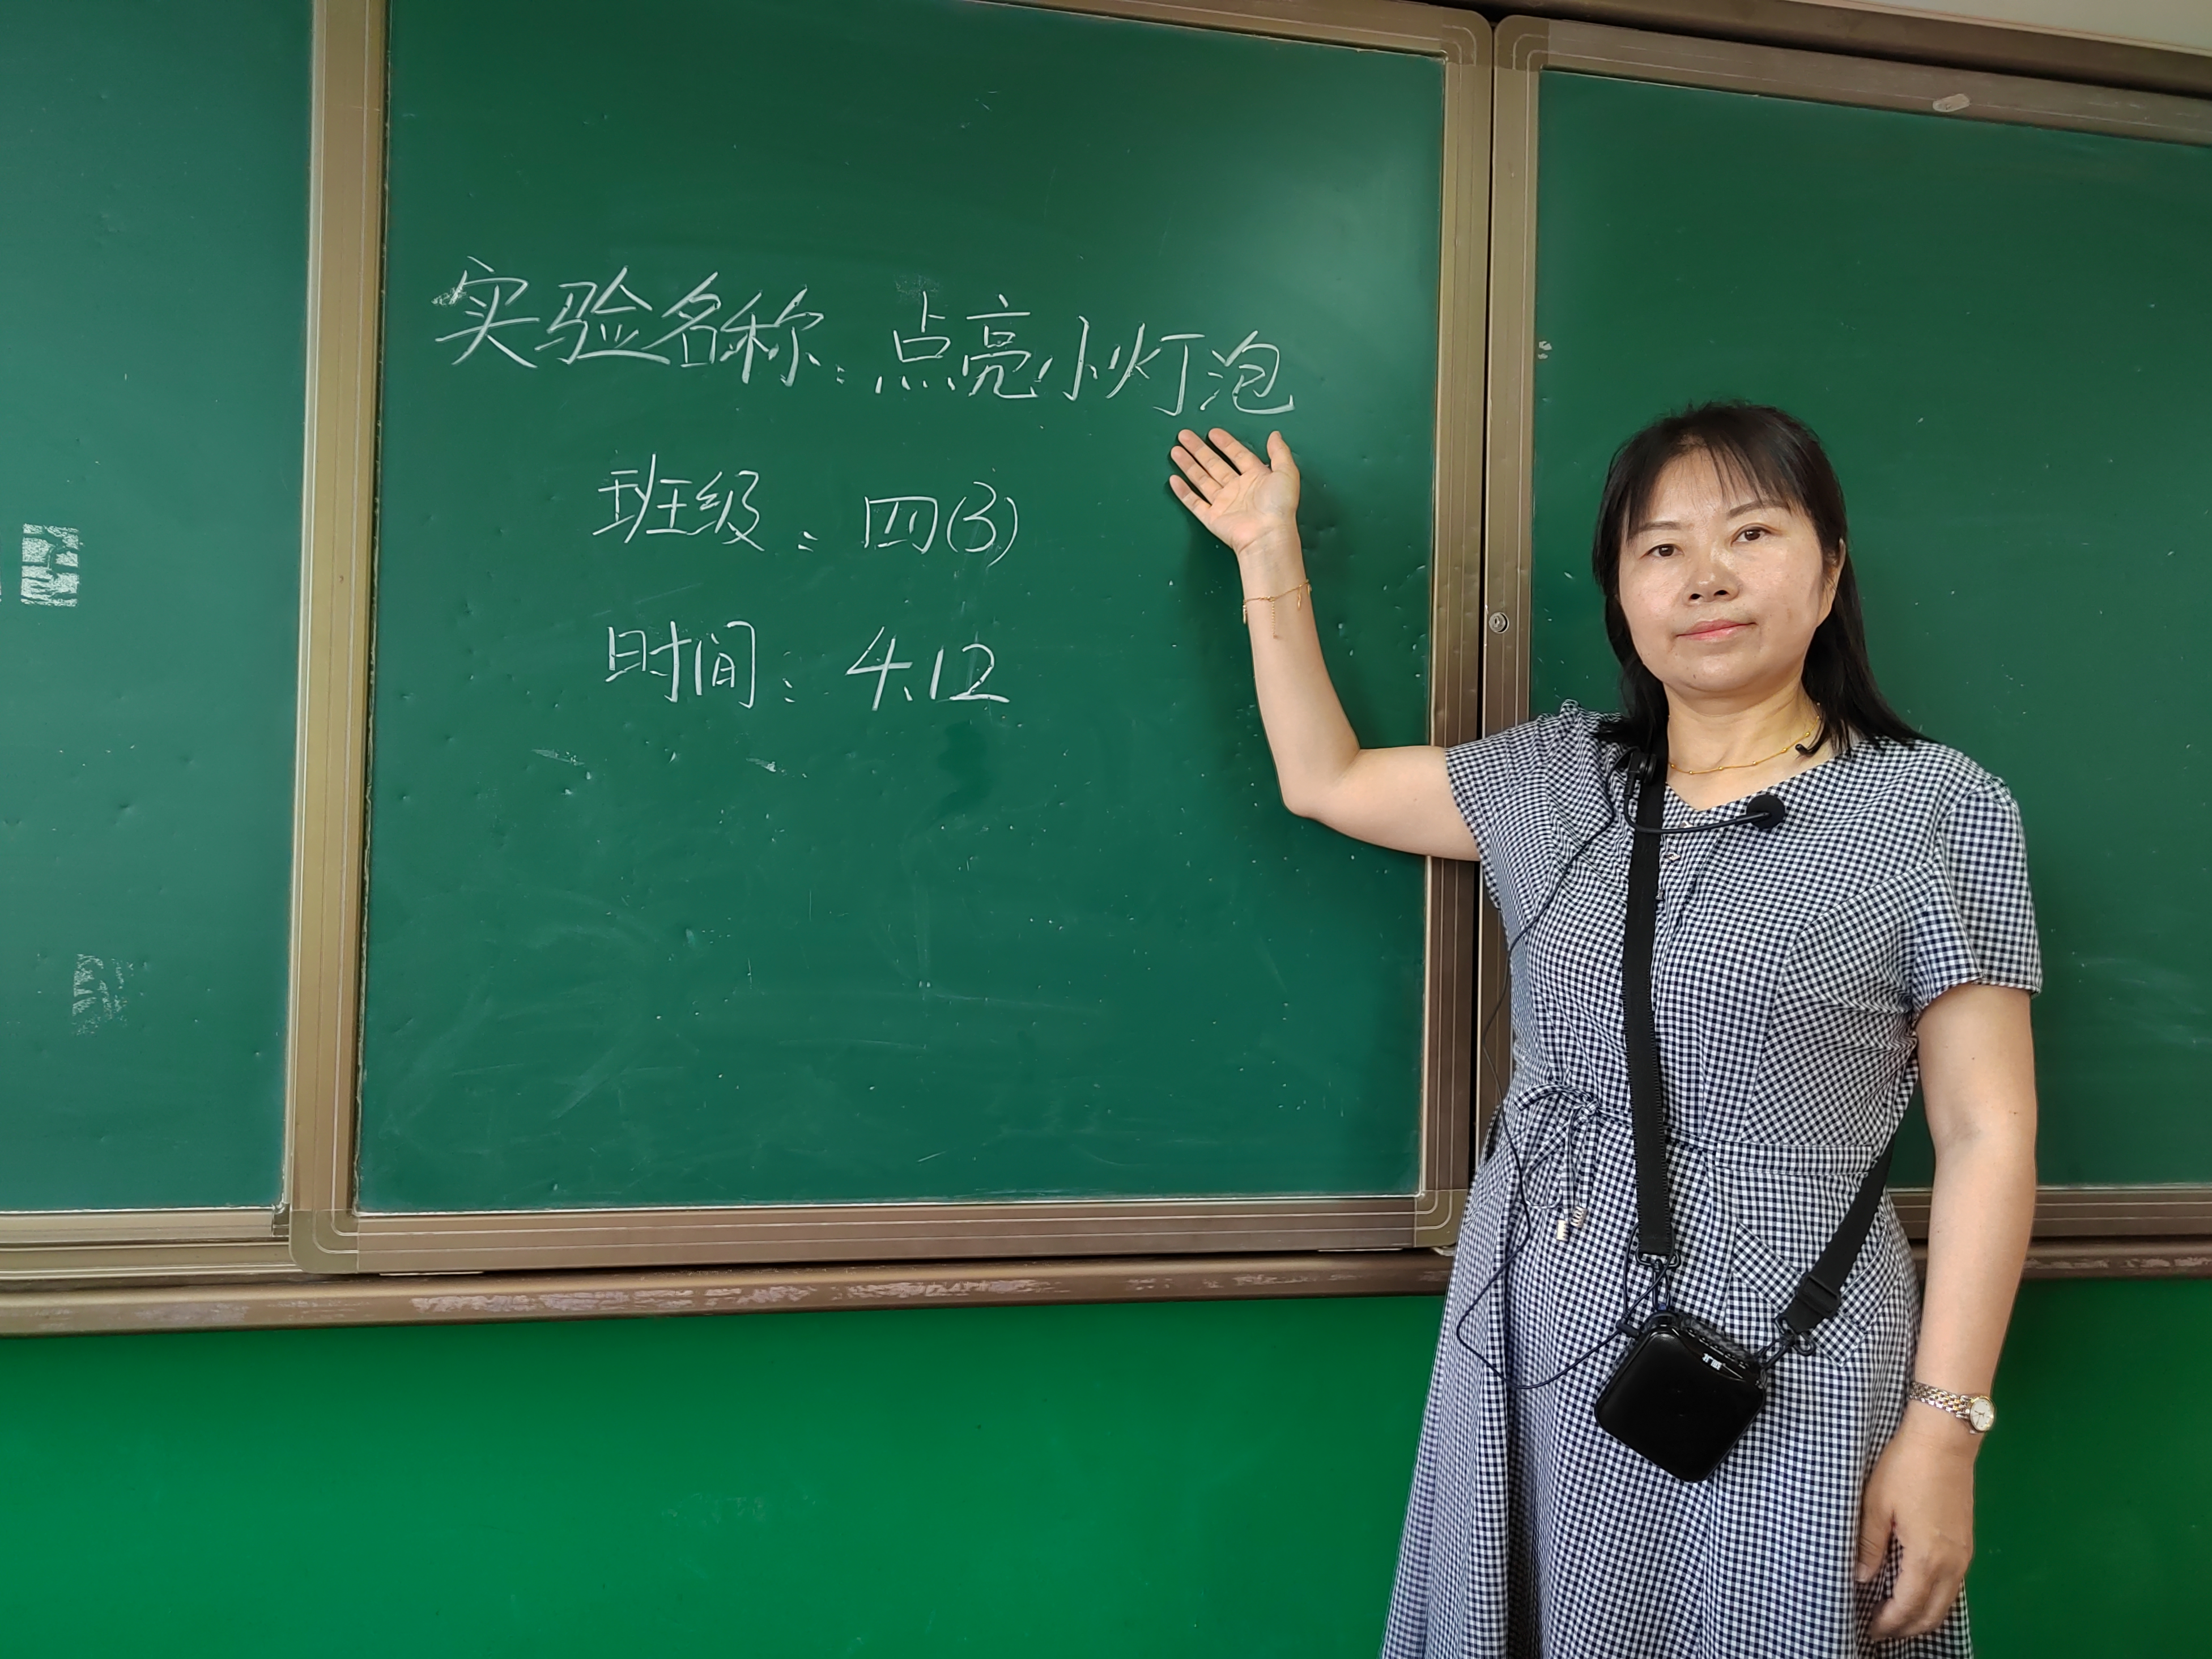 实验名称：点亮小灯泡
班级：四(3)
时间：4.12